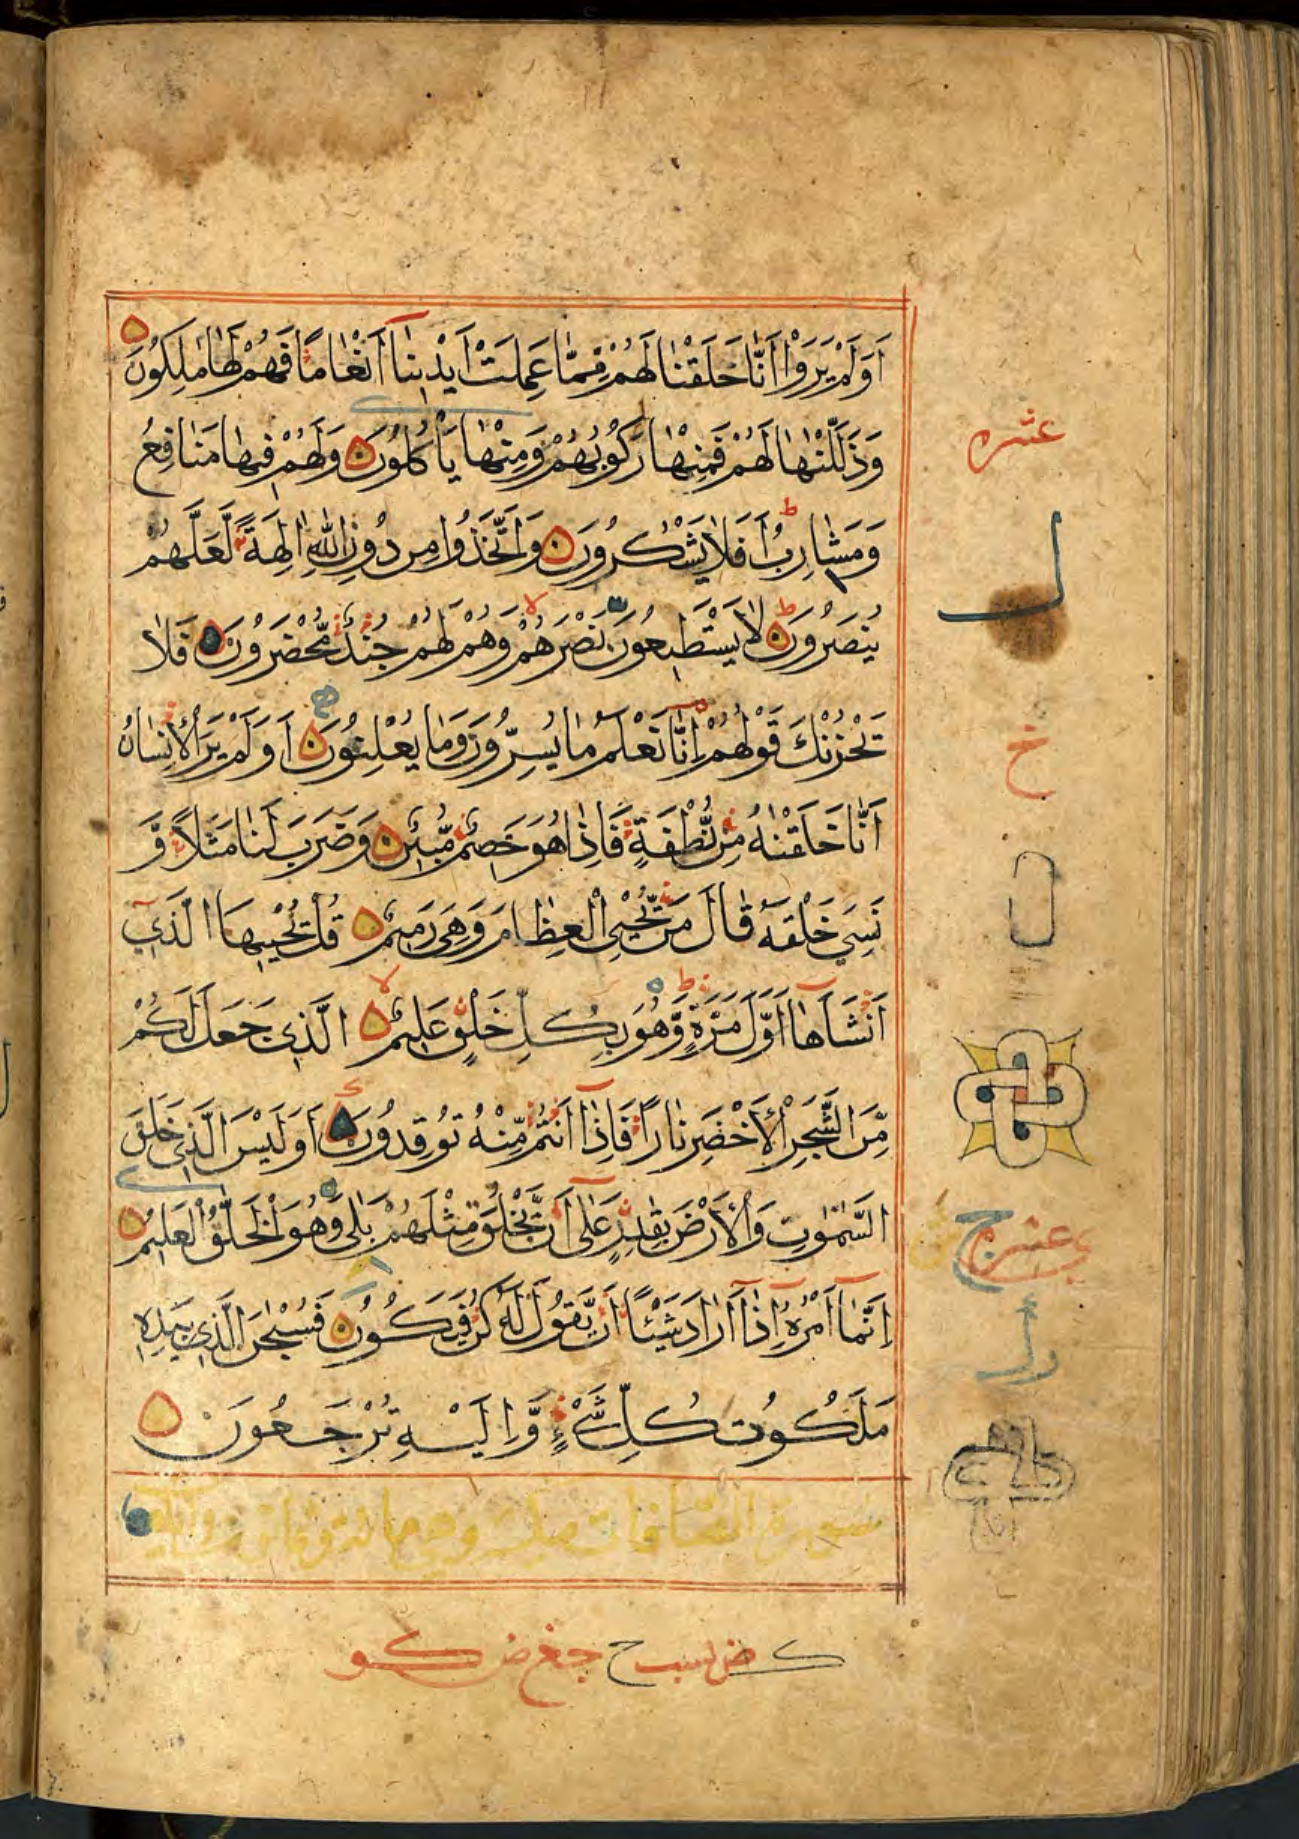 اَوَلَمْ يَرَوْا اَنَّا خَلَقْنَا لَهُمْ مِمَّا عَمِلَتْ اَيْدِينَا اَنْعَامًا فَهُمْ لَهَا مٰلِكُونَ
وَذَلَّلْنٰهَا لَهُمْ فَمِنْهَا رَكُوبُهُمْ وَمِنْهَا يَاْكُلُونَ وَلَهُمْ فِيهَا مَنَافِعُ
وَمَشَارِبُ اَفَلَا يَشْكُرُونَ وَاتَّخَذُوا مِنْ دُونِ اللّٰهِ اٰلِهَةً لَعَلَّهُمْ
يُنْصَرُونَ لَا يَسْتَطِيعُونَ نَصْرَهُمْ وَهُمْ لَهُمْ جُنْدٌ مُحْضَرُونَ فَلَا
يَحْزُنْكَ قَوْلُهُمْ اِنَّا نَعْلَمُ مَا يُسِرُّونَ وَمَا يُعْلِنُونَ اَوَلَمْ يَرَ الْاِنْسَانُ
اَنَّا خَلَقْنٰهُ مِنْ نُطْفَةٍ فَاِذَا هُوَ خَصِيمٌ مُبِينٌ وَضَرَبَ لَنَا مَثَلًا وَّ
نَسِيَ خَلْقَهُ قَالَ مَنْ يُحْيِي الْعِظَامَ وَهِيَ رَمِيمٌ قُلْ يُحْيِيهَا الَّذِي
اَنْشَاَهَا اَوَّلَ مَرَّةٍ وَّهُوَ بِكُلِّ خَلْقٍ عَلِيمٌ الَّذِي جَعَلَ لَكُمْ
مِّنَ الشَّجَرِ الْاَخْضَرِ نَارًا فَاِذَا اَنْتُمْ مِّنْهُ تُوقِدُونَ اَوَلَيْسَ الَّذِي خَلَقَ
السَّمٰوٰتِ وَالْاَرْضَ بِقٰدِرٍ عَلٰى اَنْ يَّخْلُقَ مِثْلَهُمْ بَلٰى وَهُوَ الْخَلّٰقُ الْعَلِيمُ
اِنَّمَا اَمْرُهُ اِذَا اَرَادَ شَيْئًا اَنْ يَّقُولَ لَهُ كُنْ فَيَكُونُ فَسُبْحٰنَ الَّذِي بِيَدِهِ
مَلَكُوتُ كُلِّ شَيْءٍ وَّاِلَيْهِ تُرْجَعُونَ
سورة الصافات
عشره
ل
خ